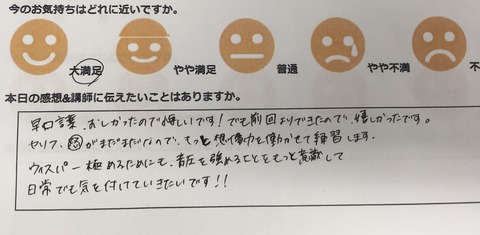 今のお気持ちはどれに近いですか。
大満足 やや満足 普通 やや不満 不
本日の感想&講師に伝えたいことはありますか。
早口言葉、おしかったので悔しいです！でも前回よりできたので、嬉しかったです。
セリフ、怒がまだまだなので、もっと想像力を働かせて練習します。
ウィスパー極めるためにも、音圧を強めることをもっと意識して
日常でも気を付けていきたいです！！